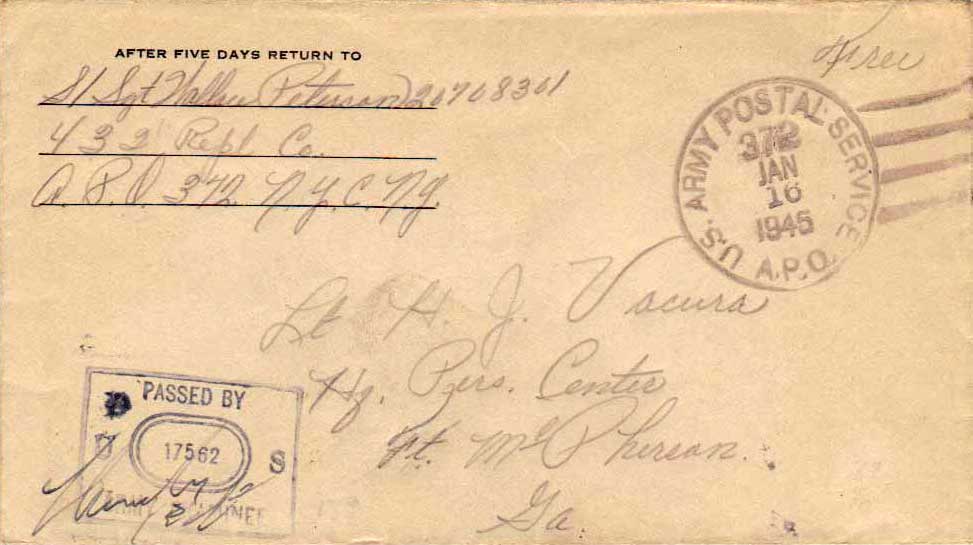 AFTER FIVE DAYS RETURN TO
S/Sgt Wallace Peterson 20708301
432 Repl. Co.
A.P.O. 372 N.Y.C. N.Y.
Free
U.S. ARMY POSTAL SERVICE
372
JAN
16
1945
A.P.O.
Lt H. J. Vacura
Hq. Pers. Center
Ft. McPherson.
Ga.
PASSED BY
U 17562 S
ARMY EXAMINER